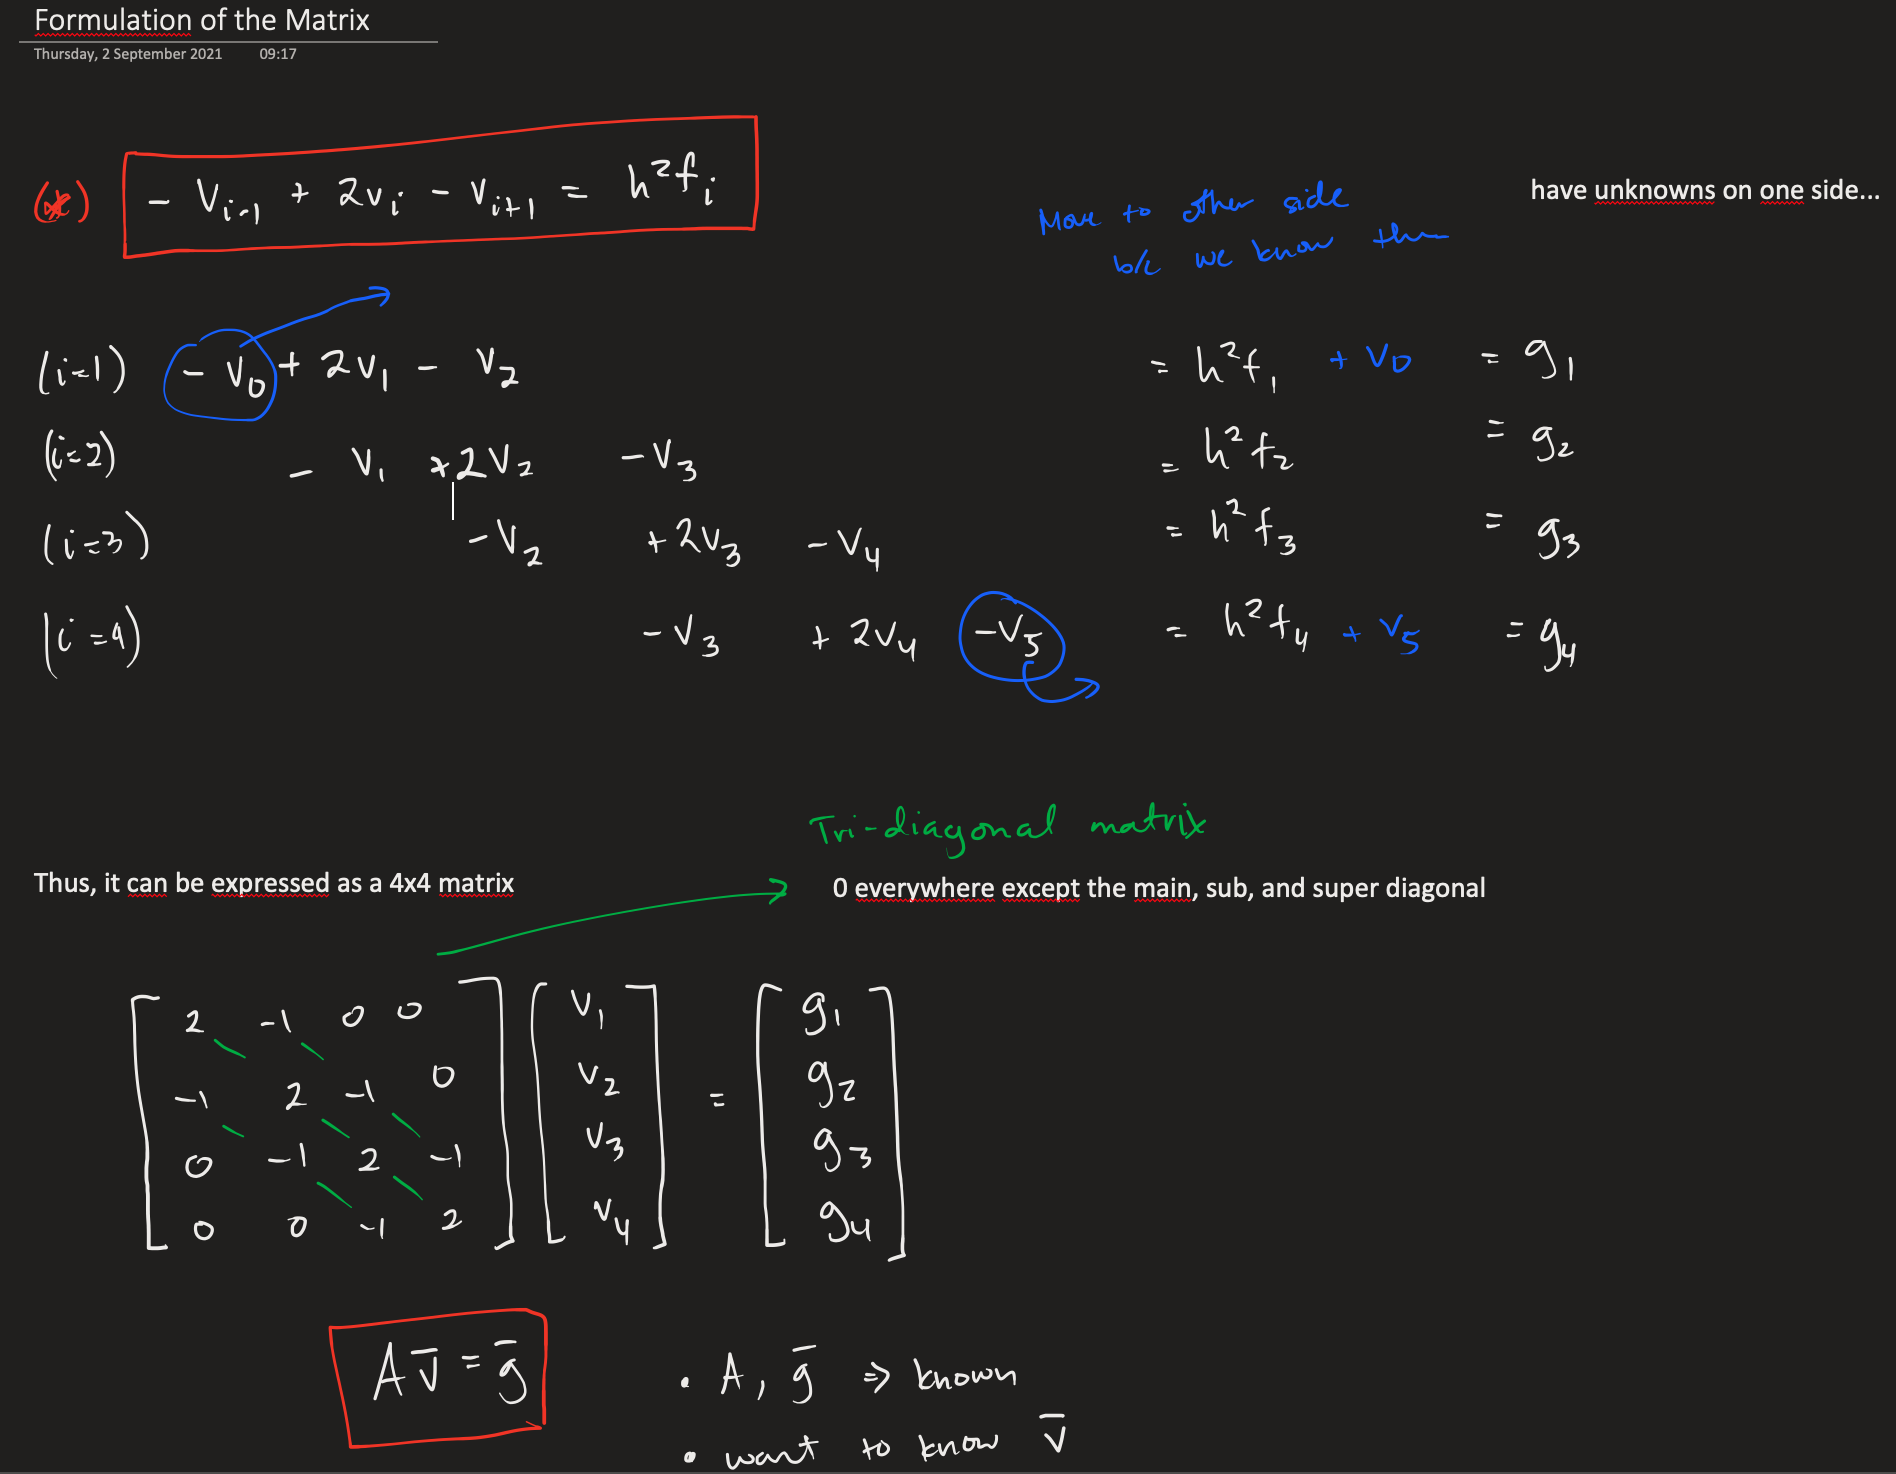 Formulation of the Matrix
Thursday, 2 September 2021 09:17
(*) - v_{i-1} + 2v_i - v_{i+1} = h²f_i
have unknowns on one side...
Move to other side
b/c we know them
(i=1) - v₀ + 2v₁ - v₂ = h²f₁ + v₀ = g₁
(i=2) - v₁ + 2v₂ - v₃ = h²f₂ = g₂
(i=3) - v₂ + 2v₃ - v₄ = h²f₃ = g₃
(i=4) - v₃ + 2v₄ - v₅ = h²f₄ + v₅ = g₄
Tri-diagonal matrix
Thus, it can be expressed as a 4x4 matrix
0 everywhere except the main, sub, and super diagonal
2 -1 0 0 v₁ g₁
-1 2 -1 0 v₂ = g₂
0 -1 2 -1 v₃ g₃
0 0 -1 2 v₄ g₄
Av̄ = ḡ
• A, ḡ ⇒ known
• want to know v̄